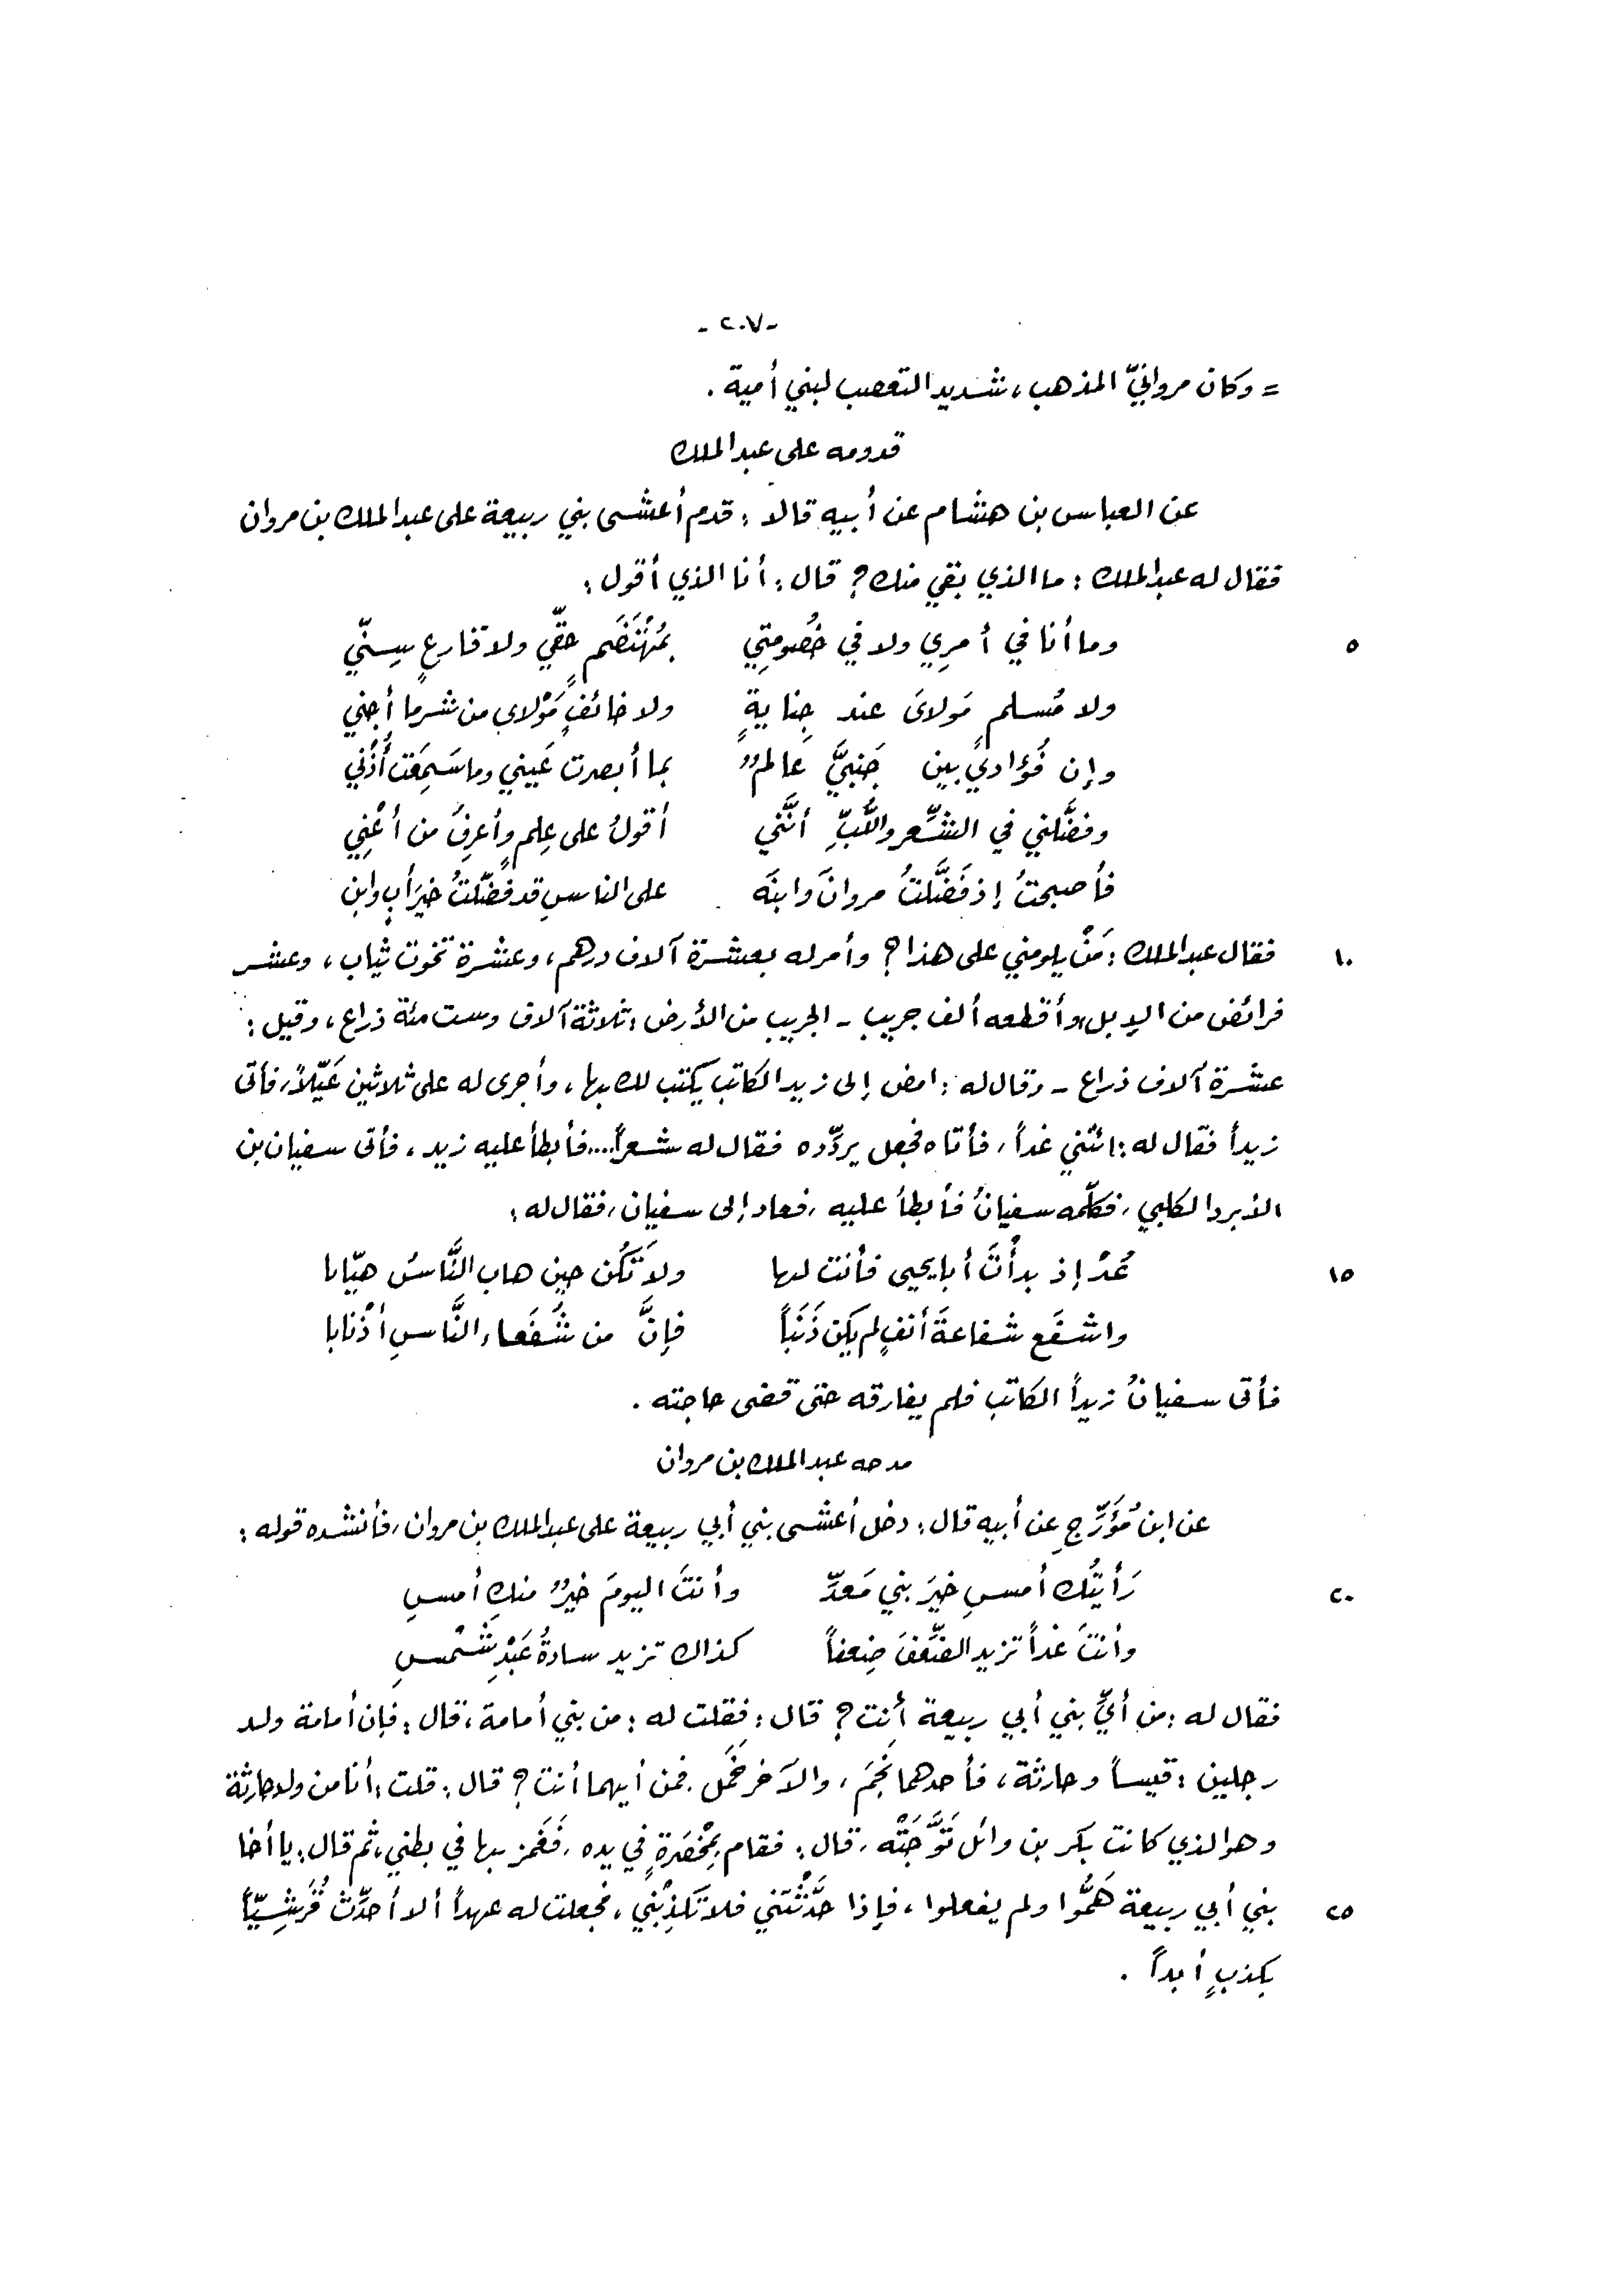 -٢٠٧-
= وكان مروانيّ المذهب، شديد التعصب لبني أمية .
قدومه على عبد الملك
عن العباس بن هشام عن أبيه قالا : قدم أعشى بني ربيعة على عبد الملك بن مروان
فقال له عبد الملك : ما الذي بقي منك ؟ قال : أنا الذي أقول :
وما أنا في أمرِي ولا في خُصُومتِي بمُهْتَضَمٍ حقّي ولا قارعٍ سِنّي ٥
ولا مُسلمٍ مَولايَ عند جِنايةٍ ولا خائفٍ مَوْلاي من شر ما أجني
وإن فُؤادي بين جَنبيَّ عَالمٌ بما أبصرت عَيني وما سَمِعَت أُذُني
وفضَّلني في الشِّعر واللُّبِّ أنَّني أقولُ على عِلمٍ وأعرِفُ من أعْنِي
فأصبحتُ إذ فَضَّلتُ مروانَ وابنَه على الناسِ قد فضّلتُ خيرَ أبٍ وابنِ
فقال عبد الملك : مَنْ يلومني على هذا ؟ وأمر له بعشرة آلاف درهم، وعشرة تخوت ثياب، وعشر ١٠
فرائض من الإبل، وأقطعه ألف جريب - الجريب من الأرض : ثلاثة آلاف وست مئة ذراع، وقيل :
عشرة آلاف ذراع - وقال له : امض إلى زيد الكاتب يكتب لك بها، وأجرى له على ثلاثين عَيّلاً، فأتى
زيداً فقال له : ائتني غداً، فأتاه فجعل يردّده فقال له شعراً .... فأبطأ عليه زيد، فأتى سفيان بن
الأبرد الكلبي، فكلّمه سفيانُ فأبطأ عليه، فعاد إلى سفيان، فقال له :
عُدْ إذ بدأْتَ أبا يحيى فأنت لها ولا تَكُن حين هاب النَّاسُ هيّابا ١٥
واشفَع شفاعةَ أنفٍ لم يكن ذَنَباً فإنَّ من شُفَعاء النَّاسِ أذْنابا
فأتى سفيانُ زيداً الكاتب فلم يفارقه حتى قضى حاجته .
مدحه عبد الملك بن مروان
عن ابن مُؤَرِّجٍ عن أبيه قال : دخل أعشى بني أبي ربيعة على عبد الملك بن مروان، فأنشده قوله :
رَأيتُك أمسِ خيرَ بني مَعدّ وأنتَ اليومَ خيرٌ منكِ أمسِ ٢٠
وأنتَ غداً تزيد الضِّعفَ ضِعفاً كذاك تزيد سادةُ عَبْدِ شَمْسِ
فقال له : من أيِّ بني أبي ربيعة أنت ؟ قال : فقلت له : من بني أمامة، قال : فإن أمامة ولد
رجلين : قيساً وحارثة، فأحدهما نَجَمَ، والآخر خَمَل. فمن أيهما أنت ؟ قال : قلت : أنا من ولد حارثة
وهو الذي كانت بكر بن وائل تَوَّجَتْه، قال : فقام بِمْخصَرةٍ في يده، فَغَمز بها في بطني، ثم قال : يا أخا
بني أبي ربيعة هَمُّوا ولم يفعلوا، فإذا حَدَّثْتَني فلا تَكذِبْني، فجعلت له عهداً ألا أحدِّث قُرَشِيّاً ٢٥
بكذبٍ أبداً .